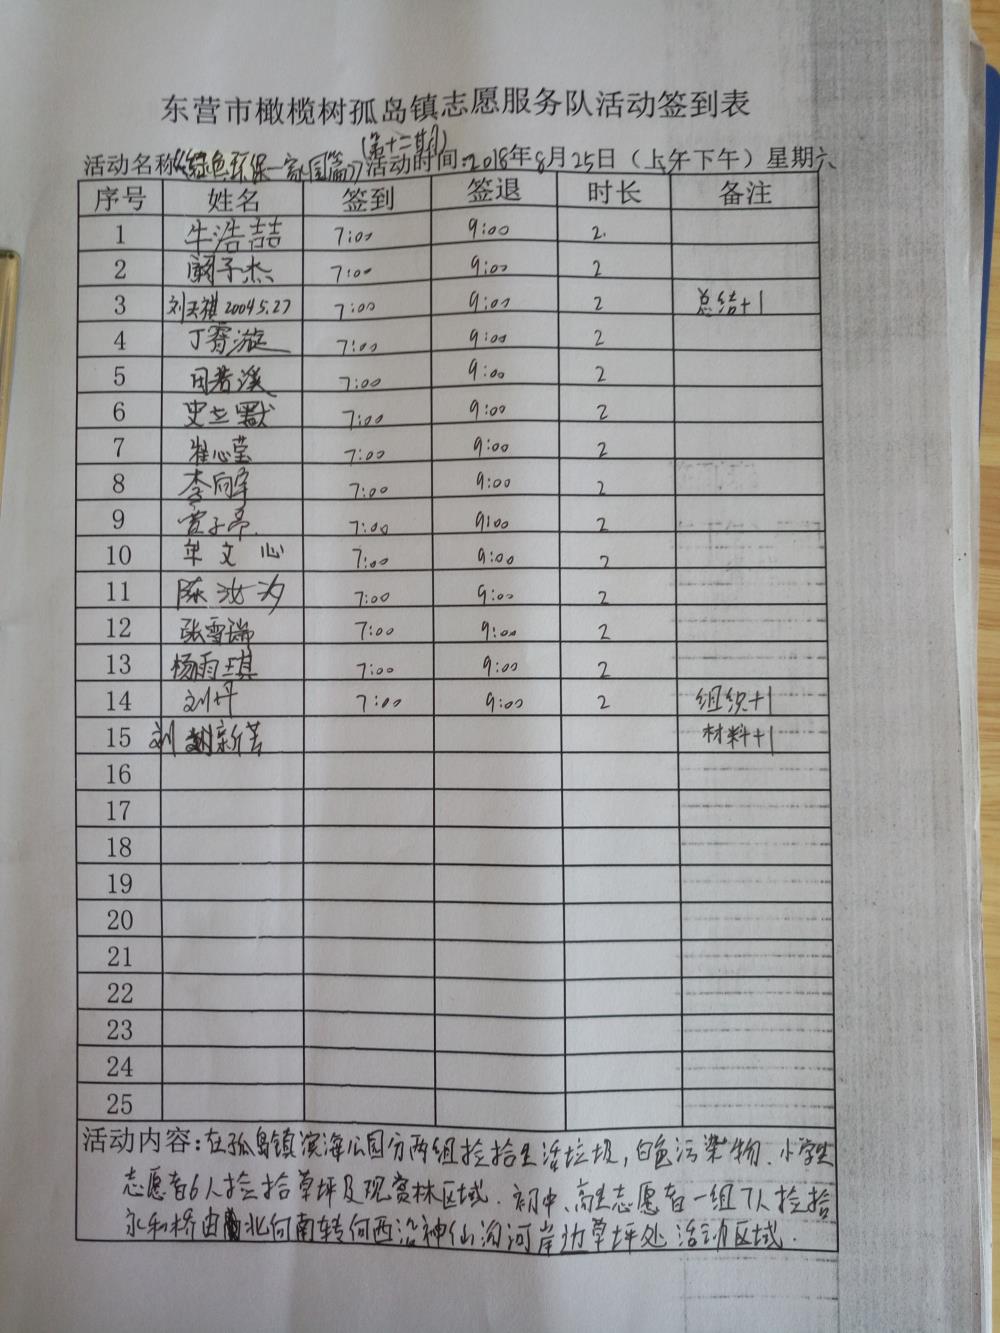 东营市橄榄树孤岛镇志愿服务队活动签到表
(第十二期)
活动名称《绿色环保一家园篇》活动时间:2018年8月25日（上午下午）星期六
序号 姓名 签到 签退 时长 备注
1 牛浩喆 7:00 9:00 2
2 阚子杰 7:00 9:00 2
3 刘天祺 2004 5.27 7:00 9:00 2 总结+1
4 丁睿漩 7:00 9:00 2
5 田若溪 7:00 9:00 2
6 史兰默 7:00 9:00 2
7 崔心莹 7:00 9:00 2
8 李向 7:00 9:00 2
9 子 7:00 9:00 2
10 牟文心 7:00 9:00 2
11 陈汝汐 7:00 9:00 2
12 张雪瑞 7:00 9:00 2
13 杨雨琪 7:00 9:00 2
14 刘丹 7:00 9:00 2 组织+1
15 刘 新 材料+1
16
17
18
19
20
21
22
23
24
25
活动内容:在孤岛镇滨海公园分两组捡拾生活垃圾,白色污染物.小学生
志愿者6人捡拾草坪及观赏林区域.初中、高生志愿者一组7人捡拾
永和桥由北向南转向西沿神仙沟河岸边草坪处活动区域.